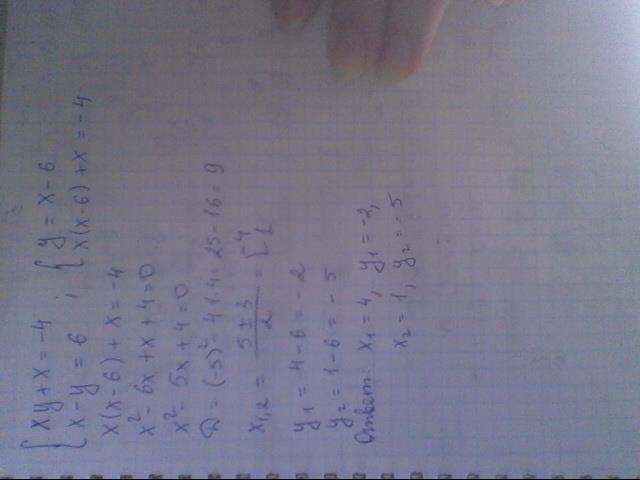 { xy + x = -4
x - y = 6 ; { y = x - 6
x(x-6) + x = -4
x(x-6) + x = -4
x² - 6x + x + 4 = 0
x² - 5x + 4 = 0
D = (-5)² - 4·1·4 = 25 - 16 = 9
x₁,₂ = (5 ± 3)/2 = [ 4
1
y₁ = 4 - 6 = -2
y₂ = 1 - 6 = -5
Ответ: x₁ = 4, y₁ = -2,
x₂ = 1, y₂ = -5